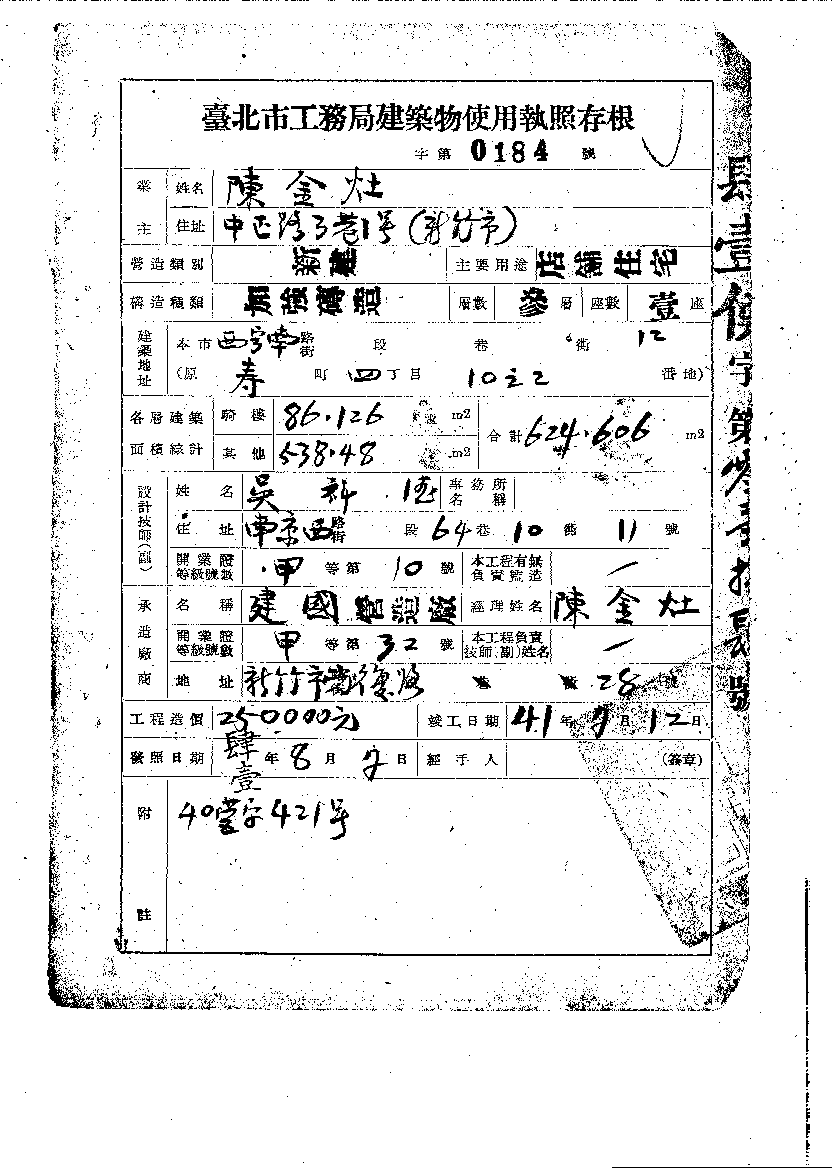 臺北市工務局建築物使用執照存根
字第 0184 號
業主 姓名 陳金灶
住址 中正路3巷1号(新竹市)
營造類別 新建 主要用途 店舖住宅
構造種類 加强磚造 層數 參層 座數 壹座
建築地址 本市 西寧南 路街 段 巷 衖 12
(原 寿 町 四 丁目 10之2 番地)
各層建築面積總計 騎樓 86.126 m2 合計 624.606 m2
其他 538.48 m2
設計技師(副) 姓名 吳 事務所名稱
住址 南京西 路街 段 64 巷 10 衖 11 號
開業證等級號數 甲 等第 10 號 本工程有無負責監造 一
承造廠商 名稱 建國營造廠 經理姓名 陳金灶
開業證等級號數 甲 等第 32 號 本工程負責技師(副)姓名 一
地址 新竹市 28 號
工程造價 250000元 竣工日期 41年 月12日
發照日期 肆壹年8月 日 經手人 (簽章)
附註 40營字421号
字第
號